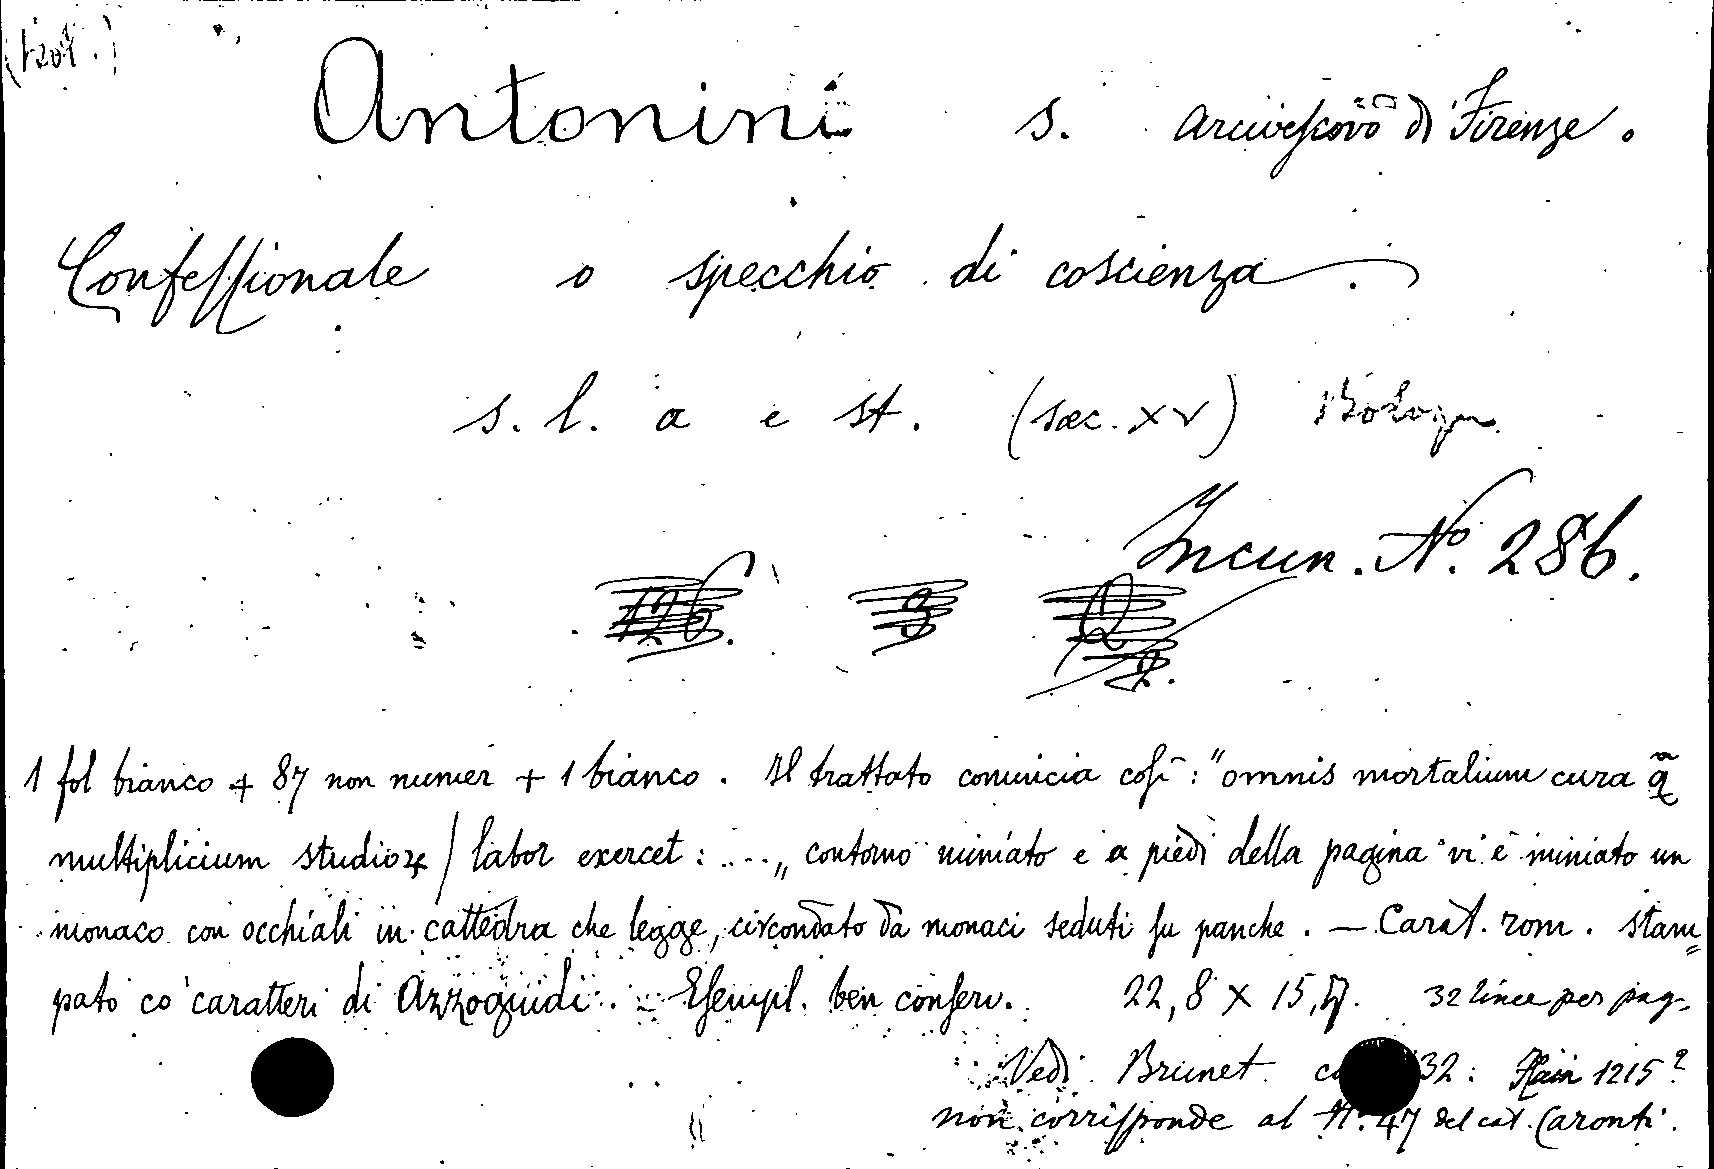 Antonini S. Arcivescovo di Firenze.
Confessionale o specchio di coscienza.
s. l. a e st. (sæc. XV) Bologna
Incun. Nº. 286.
126. 3 Q
2.
1 fol bianco + 87 non numer + 1 bianco. Il trattato comincia così: "omnis mortalium cura q̃
multiplicium studioꝝ / labor exercet: ....„ contorno miniato e a piedi della pagina vi è miniato un
monaco con occhiali in cattedra che legge, circondato da monaci seduti su panche. — Carat. rom. stam=
pato co' caratteri di Azzoguidi. — Esempl. ben conserv. 22,8 x 15,7. 32 linee per pag.
Vedi Brunet 32: Hain 1215?
non corrisponde al Nº. 47 del cat. Caronti.